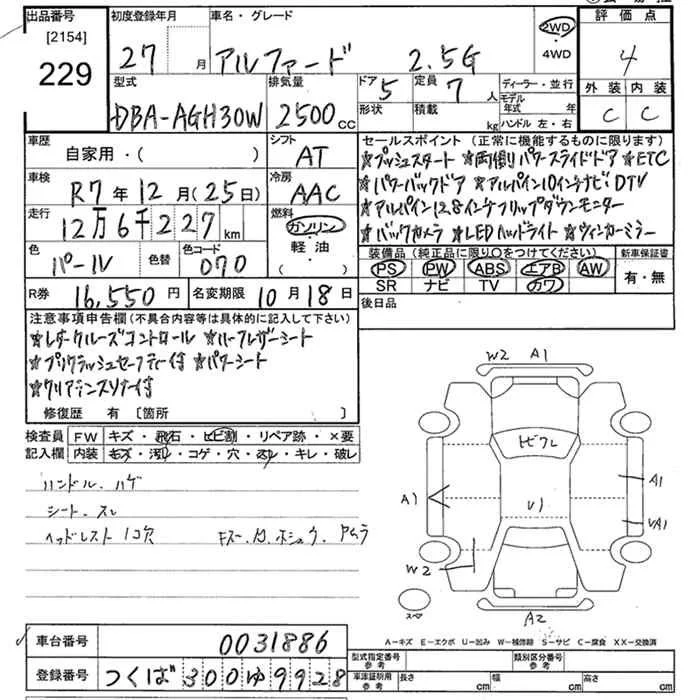 出品番号
[2154]
229
初度登録年月
27 月
車名・グレード
アルファード 2.5G
2WD
4WD
評価点
4
外装 内装
C C
型式
DBA-AGH30W
排気量
2500 cc
ドア 5
形状
定員 7 人
積載 kg
ディーラー・並行
モデル年式 年
ハンドル 左・右
車歴
自家用・( )
シフト
AT
車検
R7年12月(25日)
冷房
AAC
走行
12万6千227 km
燃料
ガソリン
軽油
( )
色
パール
色替
色コード
070
セールスポイント (正常に機能するものに限ります)
★プッシュスタート ★両側パワースライドドア ★ETC
★パワーバックドア ★アルパイン10インチナビ・DTV
★アルパイン12.8インチフリップダウンモニター
★バックカメラ ★LEDヘッドライト ★ウィンカーミラー
装備品 (純正品に限り○をつけてください)
PS PW ABS エアB AW
SR ナビ TV カワ
新車保証書
有・無
R券 16,550円
名変期限 10月18日
後日品
注意事項申告欄 (不具合内容等は具体的に記入して下さい)
★レダークルーズコントロール ★ハーフレザーシート
★プリクラッシュセーフティー付 ★パワーシート
★クリアランスソナー付
修復歴 有 [箇所 ]
検査員記入欄
FW キズ・飛石・ヒビ割・リペア跡・×要
内装 キズ・汚レ・コゲ・穴・スレ・キレ・破レ
ハンドル.ハゲ
シート.スレ
ヘッドレスト1コ穴
Fズー.G.ホシュウ.アムラ
W2 A1
ヒビワレ
A1
A1
V1
VA1
W2
A2
スペア
A-キズ E-エクボ U-凹み W-補修跡 S-サビ C-腐食 XX-交換済
車台番号 0031886
登録番号 つくば300ゆ9928
型式指定番号 参考
類別区分番号 参考
車庫証明用 参考
長さ cm
幅 cm
高さ cm